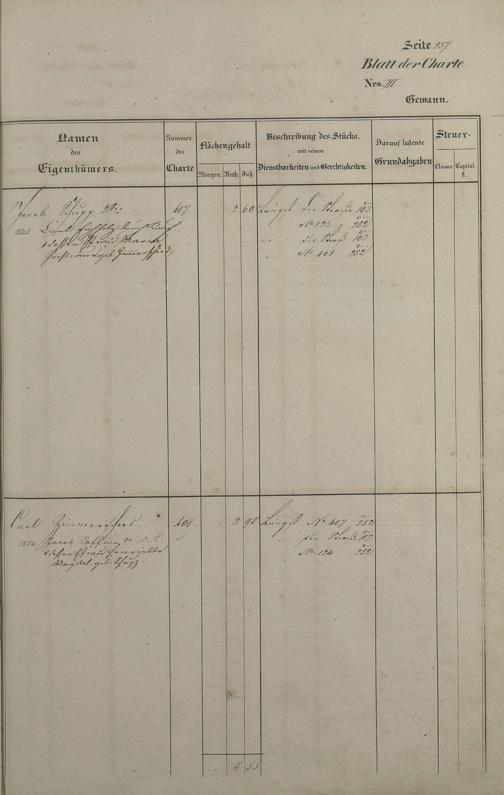 Seite 937
Blatt der Charte
Nro. III
Gewann.
Namen
des
Eigenthümers.
Nummer
der
Charte
Flächengehalt
Morgen. Ruth. Fuß.
Beschreibung des Stücks.
mit seinen
Dienstbarkeiten und Gerechtigkeiten.
Darauf laßende
Grundabgaben
Steuer-
Classe. Capital
fl.
Jacob Schupp 2ter 407 2 60 Längst die Straße 103
1825 No 123 252
dessen Frau die Straß 103
No 408 252
Carl Zimmerschied 408 2 95 Längst No 407 252
1824 Jacob die Straß 117
dessen Frau No 124 252
Magdal. geb. Schupp.
5. 55.